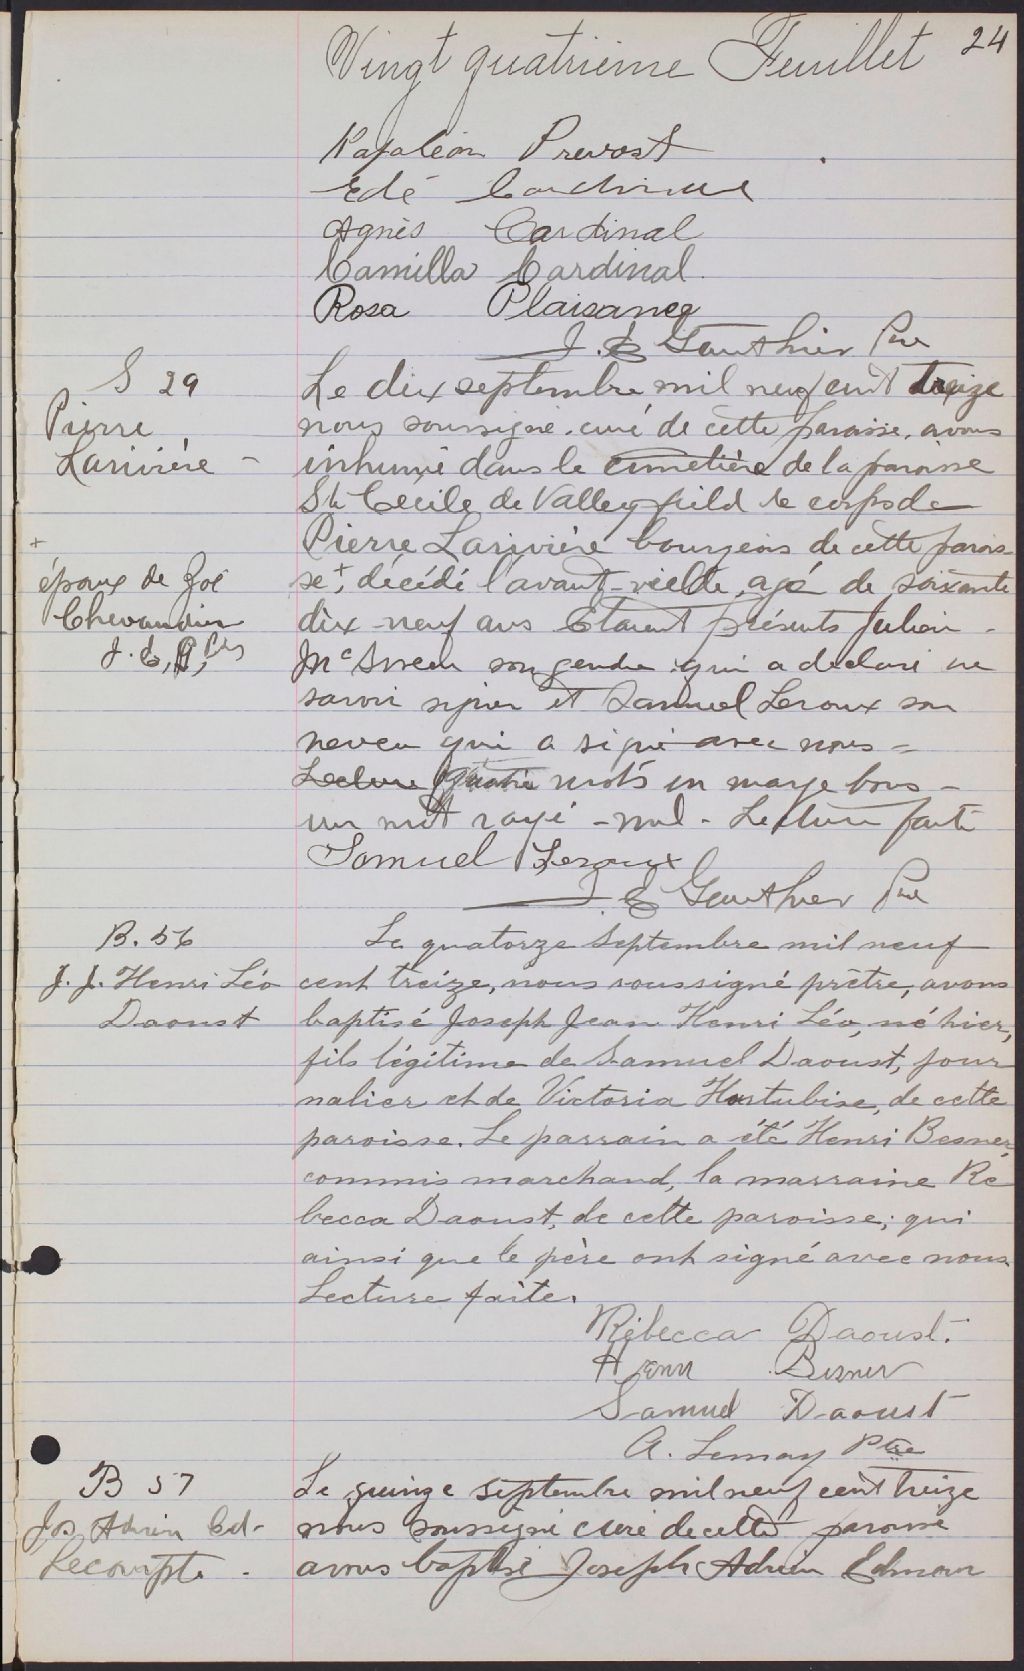 24
Vingt quatrième Feuillet
Napoléon Prevost
Edé Cardinal
Agnès Cardinal
Camilla Cardinal.
Rosa Plaisance
J. E Gauthier Ptre
S 29
Pierre
Larivière -
+
époux de Zoé
Chevaudier
J. E,
Le dix septembre mil neuf cent treize
nous soussigné curé de cette paroisse, avons
inhumé dans le cimetière de la paroisse
Ste Cécile de Valleyfield le corps de
Pierre Larivière bourgeois de cette parois
se+, décédé l'avant-veille, agé de soixante
dix-neuf ans Etaient présents Julien -
son gendre qui a déclaré ne
savoir signer et Samuel Leroux son
neveu qui a signé avec nous =
Lecture quatre mots en marge bons -
un mot rayé - nul - Lecture faite
Samuel Leroux
J. E Gauthier Ptre
B. 56
J. J. Henri Léo
Daoust
Le quatorze septembre mil neuf
cent treize, nous soussigné prêtre, avons
baptisé Joseph Jean Henri Léo, né hier,
fils légitime de Samuel Daoust, jour
nalier et de Victoria Hurtubise, de cette
paroisse. Le parrain a été Henri Besner,
commis marchand, la marraine Ré
becca Daoust, de cette paroisse; qui
ainsi que le père ont signé avec nous.
Lecture faite.
Rébecca Daoust.
Henri Besner
Samuel Daoust
A. Lemay Ptre
B 57
Jos Adrien Ed-
Lecompte -
Le quinze septembre mil neuf cent treize
nous soussigné curé de cette paroisse
avons baptisé Joseph Adrien Edmour